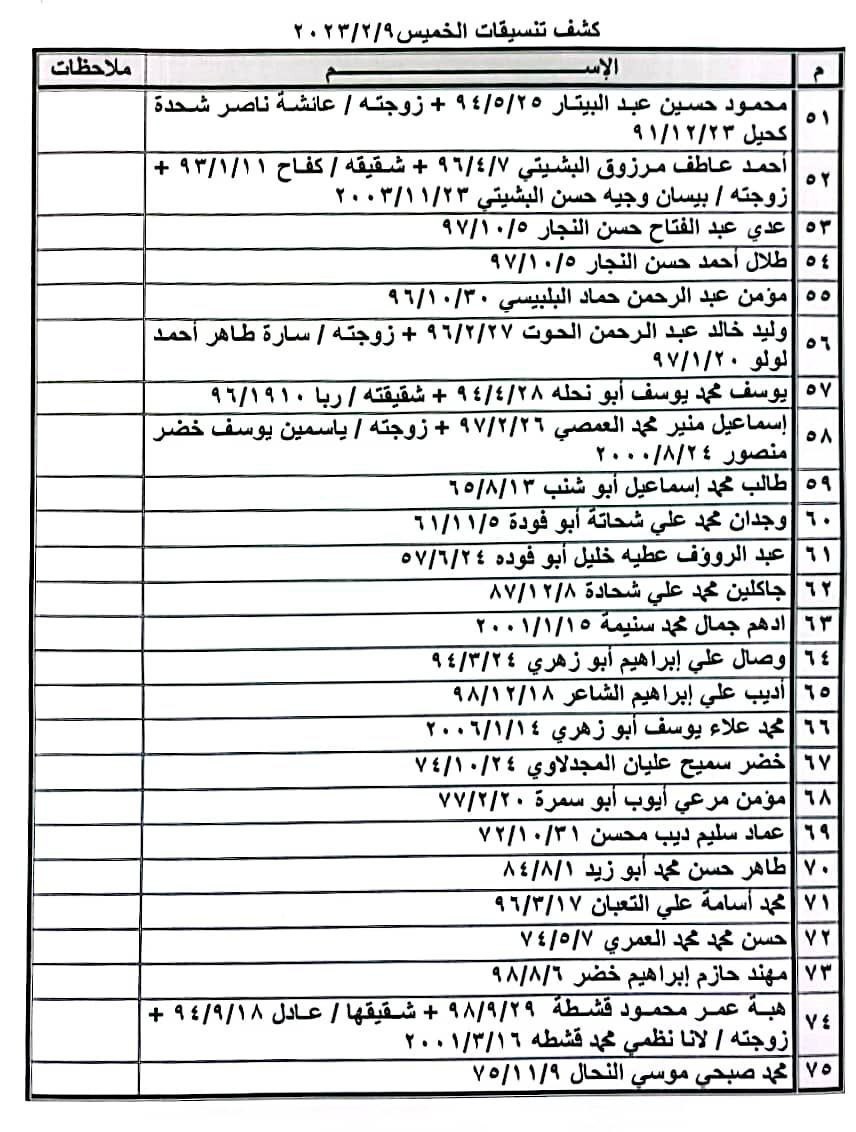 كشف تنسيقات الخميس ٢٠٢٣/٢/٩
م الإســـــــــم ملاحظات
٥١ محمود حسين عبد البيتار ٩٤/٥/٢٥ + زوجته / عائشة ناصر شحدة
كحيل ٩١/١٢/٢٣
٥٢ أحمد عاطف مرزوق البشيتي ٩٦/٤/٧ + شقيقه / كفاح ٩٣/١/١١ +
زوجته / بيسان وجيه حسن البشيتي ٢٠٠٣/١١/٢٣
٥٣ عدي عبد الفتاح حسن النجار ٩٧/١٠/٥
٥٤ طلال أحمد حسن النجار ٩٧/١٠/٥
٥٥ مؤمن عبد الرحمن حماد البلبيسي ٩٦/١٠/٣٠
٥٦ وليد خالد عبد الرحمن الحوت ٩٦/٢/٢٧ + زوجته / سارة طاهر أحمد
لولو ٩٧/١/٢٠
٥٧ يوسف محمد يوسف أبو نحله ٩٤/٤/٢٨ + شقيقته / ربا ٩٦/١٩١٠
٥٨ إسماعيل منير محمد العمصي ٩٧/٢/٢٦ + زوجته / ياسمين يوسف خضر
منصور ٢٠٠٠/٨/٢٤
٥٩ طالب محمد إسماعيل أبو شنب ٦٥/٨/١٣
٦٠ وجدان محمد علي شحاتة أبو فودة ٦١/١١/٥
٦١ عبد الرووف عطيه خليل أبو فوده ٥٧/٦/٢٤
٦٢ جاكلين محمد علي شحادة ٨٧/١٢/٨
٦٣ ادهم جمال محمد سنيمة ٢٠٠١/١/١٥
٦٤ وصال علي إبراهيم أبو زهري ٩٤/٣/٢٤
٦٥ أديب علي إبراهيم الشاعر ٩٨/١٢/١٨
٦٦ محمد علاء يوسف أبو زهري ٢٠٠٦/١/١٤
٦٧ خضر سميح عليان المجدلاوي ٧٤/١٠/٢٤
٦٨ مؤمن مرعي أيوب أبو سمرة ٧٧/٢/٢٠
٦٩ عماد سليم ديب محسن ٧٢/١٠/٣١
٧٠ طاهر حسن محمد أبو زيد ٨٤/٨/١
٧١ محمد أسامة علي التعبان ٩٦/٣/١٧
٧٢ حسن محمد محمد العمري ٧٤/٥/٧
٧٣ مهند حازم إبراهيم خضر ٩٨/٨/٦
٧٤ هبة عمر محمود قشطة ٩٨/٩/٢٩ + شقيقها / عادل ٩٤/٩/١٨ +
زوجته / لانا نظمي محمد قشطه ٢٠٠١/٣/١٦
٧٥ محمد صبحي موسي النحال ٧٥/١١/٩